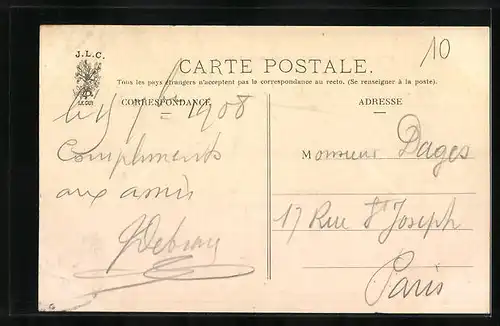 10
J.L.C.
CARTE POSTALE.
Tous les pays étrangers n'acceptent pas la correspondance au recto. (Se renseigner à la poste).
CORRESPONDANCE
ADRESSE
1908
Compliments
aux amis
Debray
Monsieur Dages
17 Rue St Joseph
Paris